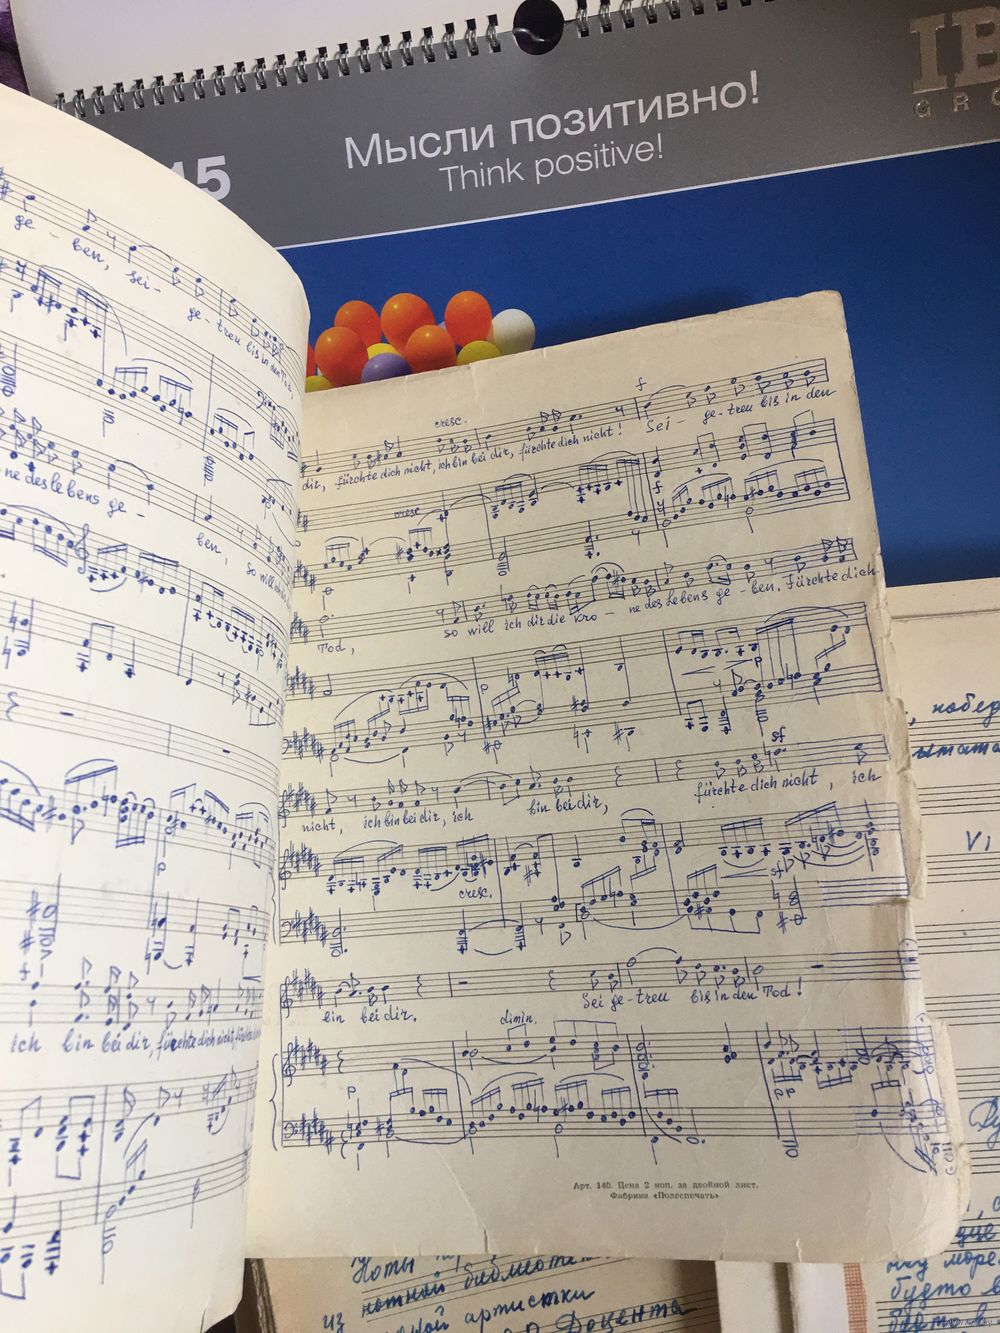 Мысли позитивно!
Think positive!
15
IB
GRO
ge - ben, sei-
ge-treu bis in den Tod,
ne des lebens ge -
ben, so will
ich bin bei dir, fürchte dich nicht,
cresc.
f
dir, fürchte dich nicht, ich bin bei dir, fürchte dich nicht! Sei - ge-treu bis in den
cresc
f
Tod, so will ich dir die Kro - ne des Lebens ge - ben. Fürchte dich
p
p
sf
nicht, ich bin bei dir, ich bin bei dir, fürchte dich nicht, ich
cresc.
sf
bin bei dir. Sei ge-treu bis in den Tod!
dimin.
p
pp
Арт. 140. Цена 2 коп. за двойной лист.
Фабрика «Полеспечать»
Vi
Ноты
из нотной библиотеки
артистки
Доцента
море
будто в